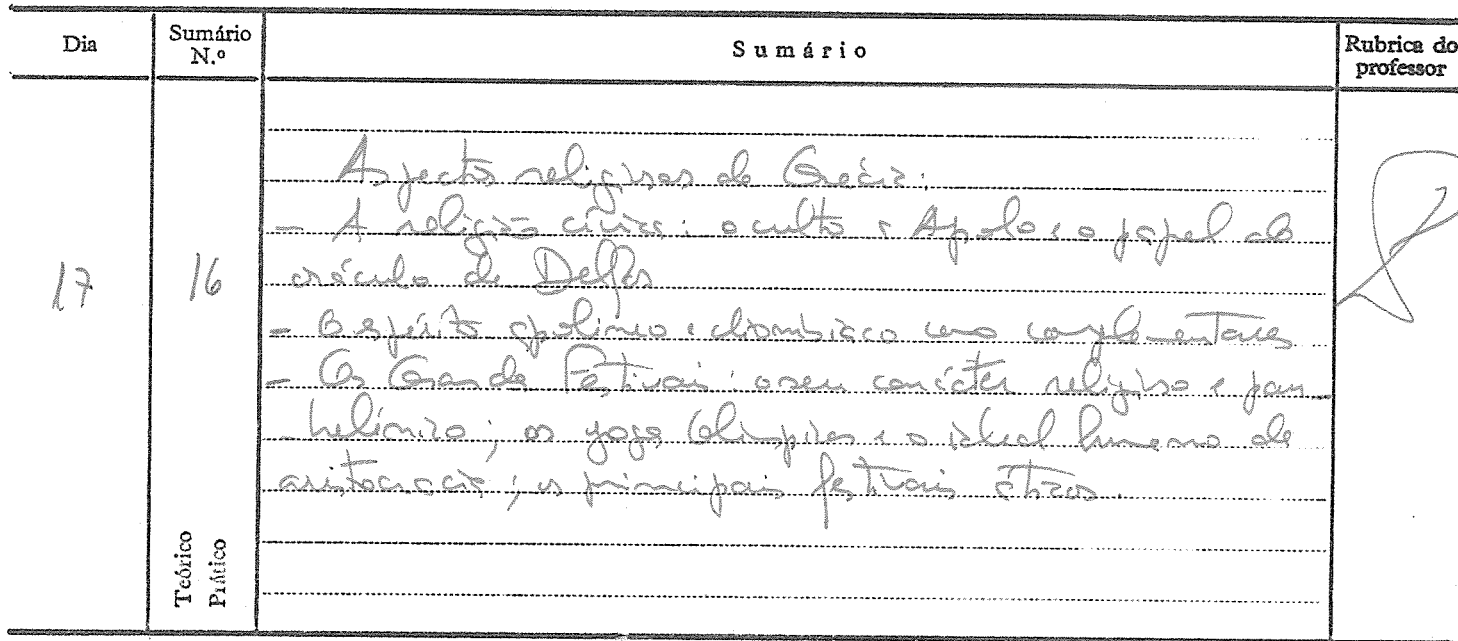 Dia
Sumário N.º
Sumário
Rubrica do professor
17
16
Aspectos religiosos da Grécia:
- A religião cívica: o culto a Apolo e o papel do
oráculo de Delfos
- O espírito apolíneo e dionisíaco como complementares
- Os Grandes Festivais: o seu carácter religioso e pan-
-helénico; os jogos Olímpicos e o ideal humano da
aristocracia; os principais festivais áticos.
Teórico
Prático